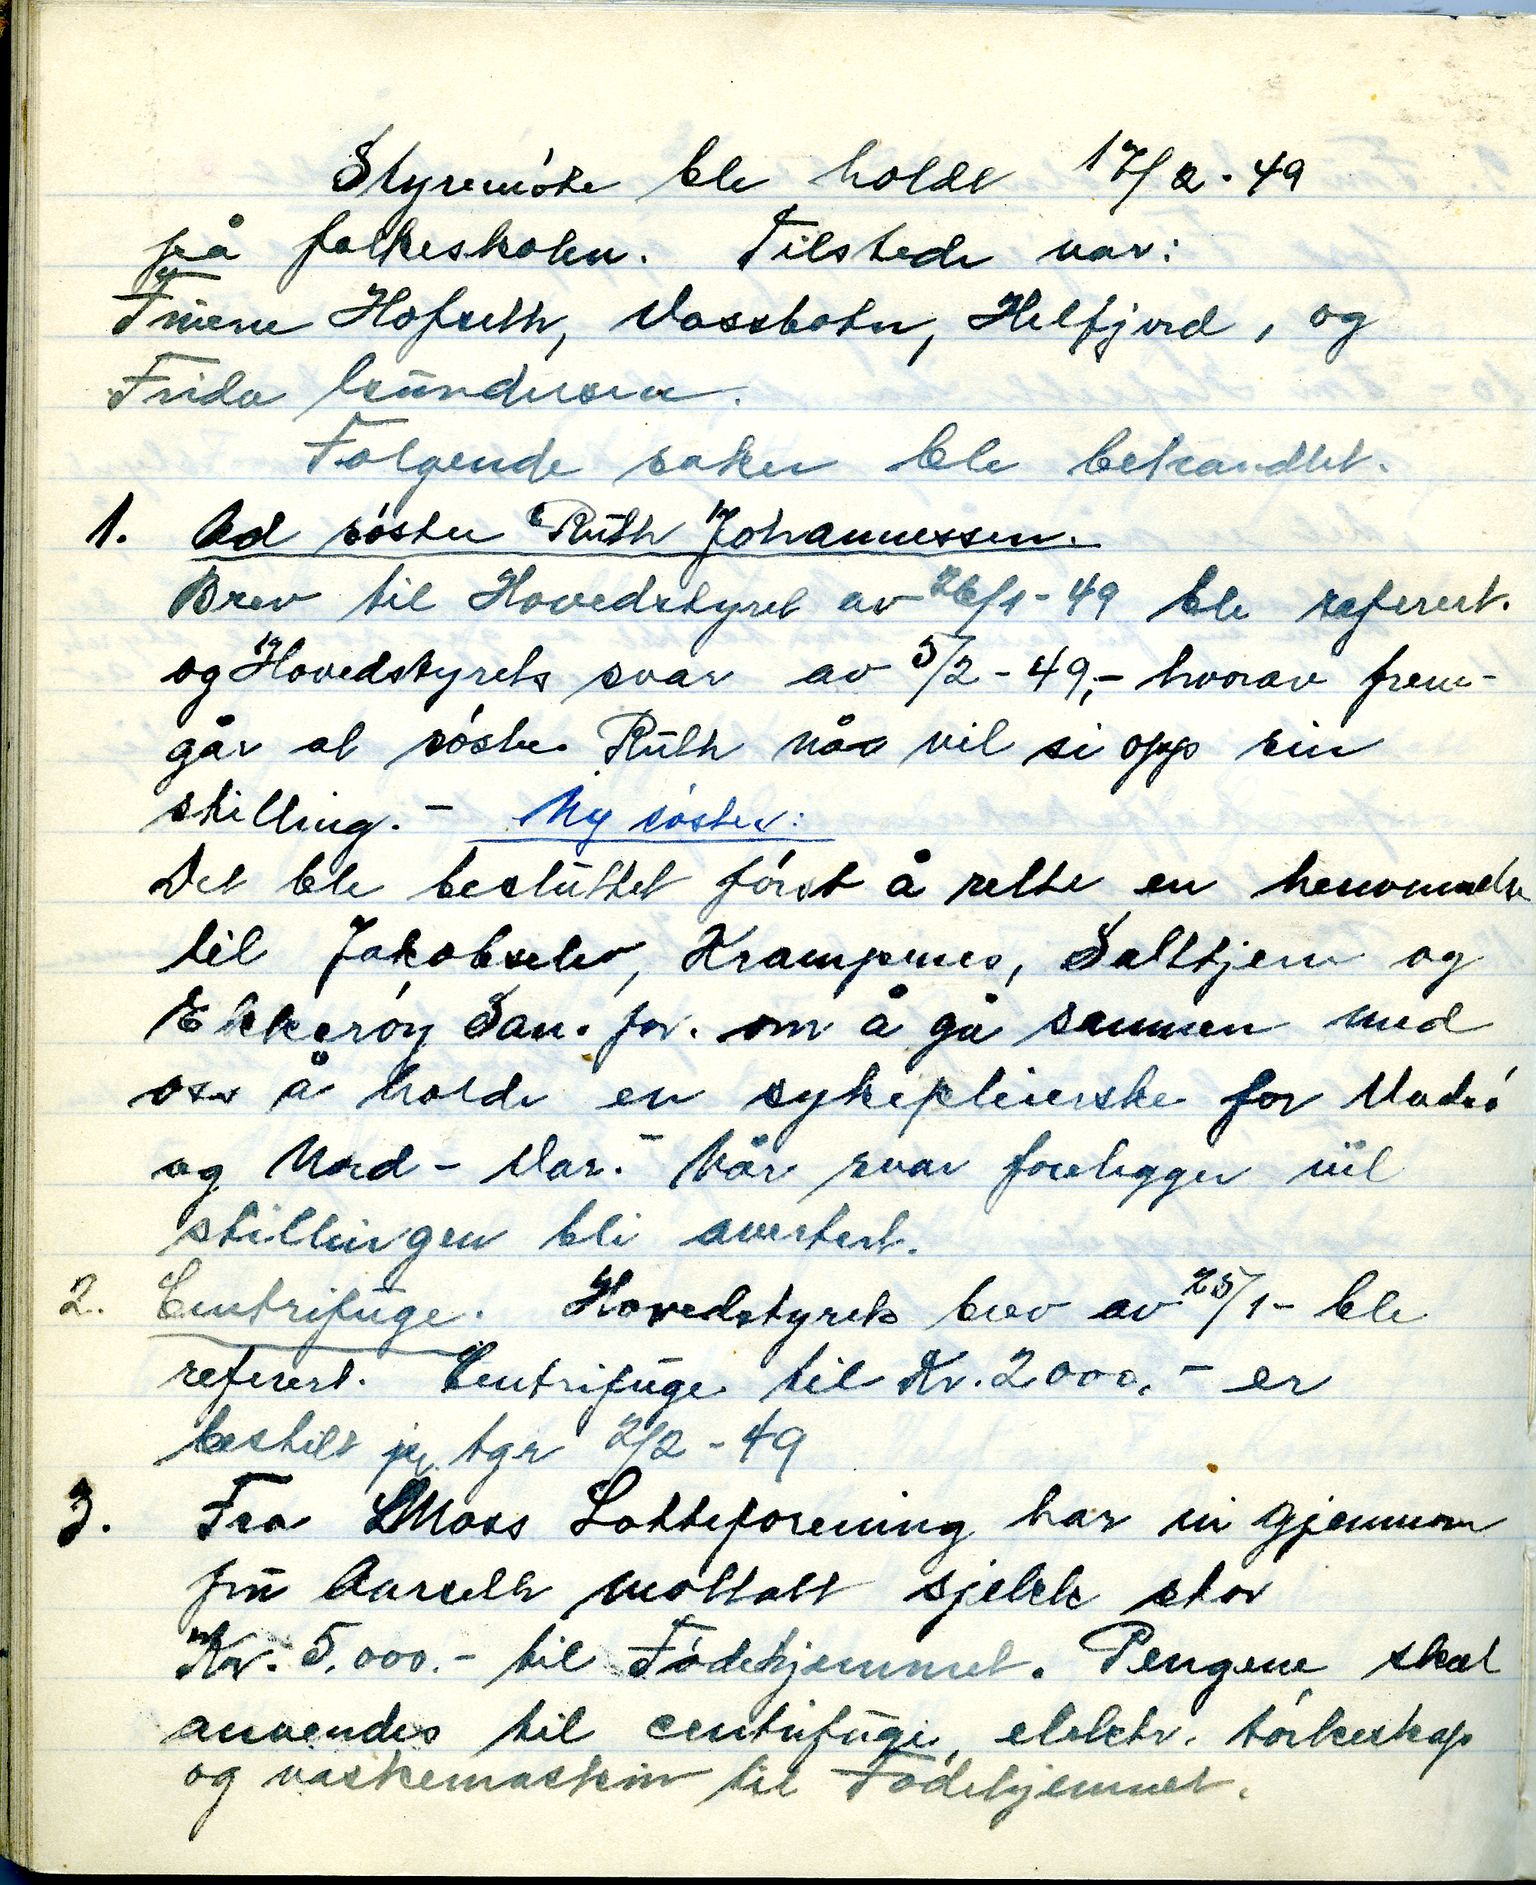 Styremöte ble holdt 17/2-49
på folkeskolen. Tilstede var:
Fruene Hofseth, Vassbotn, Helfjord, og
Frida Gundersen.
Følgende saker ble behandlet.
1. Ad söster Ruth Johannessen.
Brev til Hovedstyret av 26/1-49 ble referert.
og Hovedstyrets svar av 5/2-49,- hvorav frem-
går at söster Ruth nå vil si opp sin
stilling.- Ny söster:
Det ble besluttet först å rette en henvendelse
til Jakobselv, Krampenes, Salttjern og
Ekkeröy San. for. om å gå sammen med
oss å holde en sykepleierske for Vadsö
og Nord-Var.- Når svar foreligger vil
stillingen bli avertert.
2. Centrifuge. Hovedstyrets brev av 25/1- ble
referert. Centrifuge til Kr. 2000,- er
bestilt pr. tgr 2/2-49
3. Fra Moss Lotteforening har vi gjennom
fru Aarseth mottatt sjekk stor
Kr. 5.000.- til Födehjemmet. Pengene skal
anvendes til centrifuge, elektr. törkeskap
og vaskemaskin til Födehjemmet.